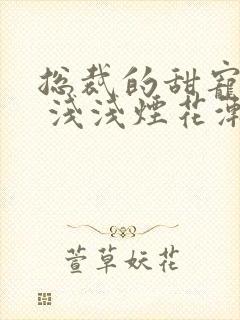 总裁的甜宠
浅浅煙花
萱草妖花